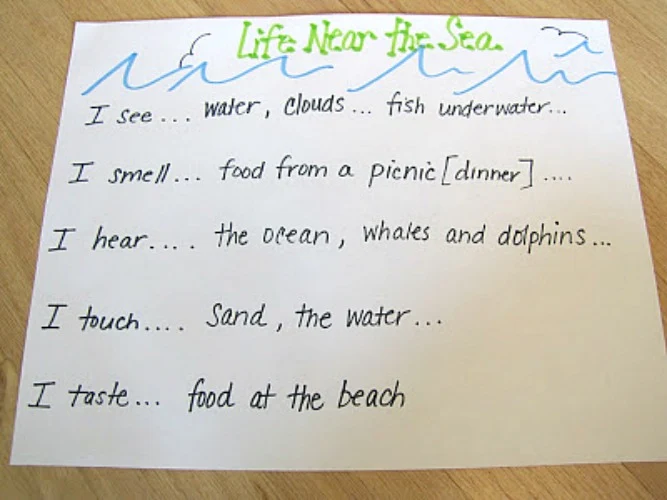 Life Near the Sea.
I see... water, clouds... fish underwater...
I smell... food from a picnic [dinner] ....
I hear.... the ocean, whales and dolphins...
I touch.... Sand, the water...
I taste... food at the beach